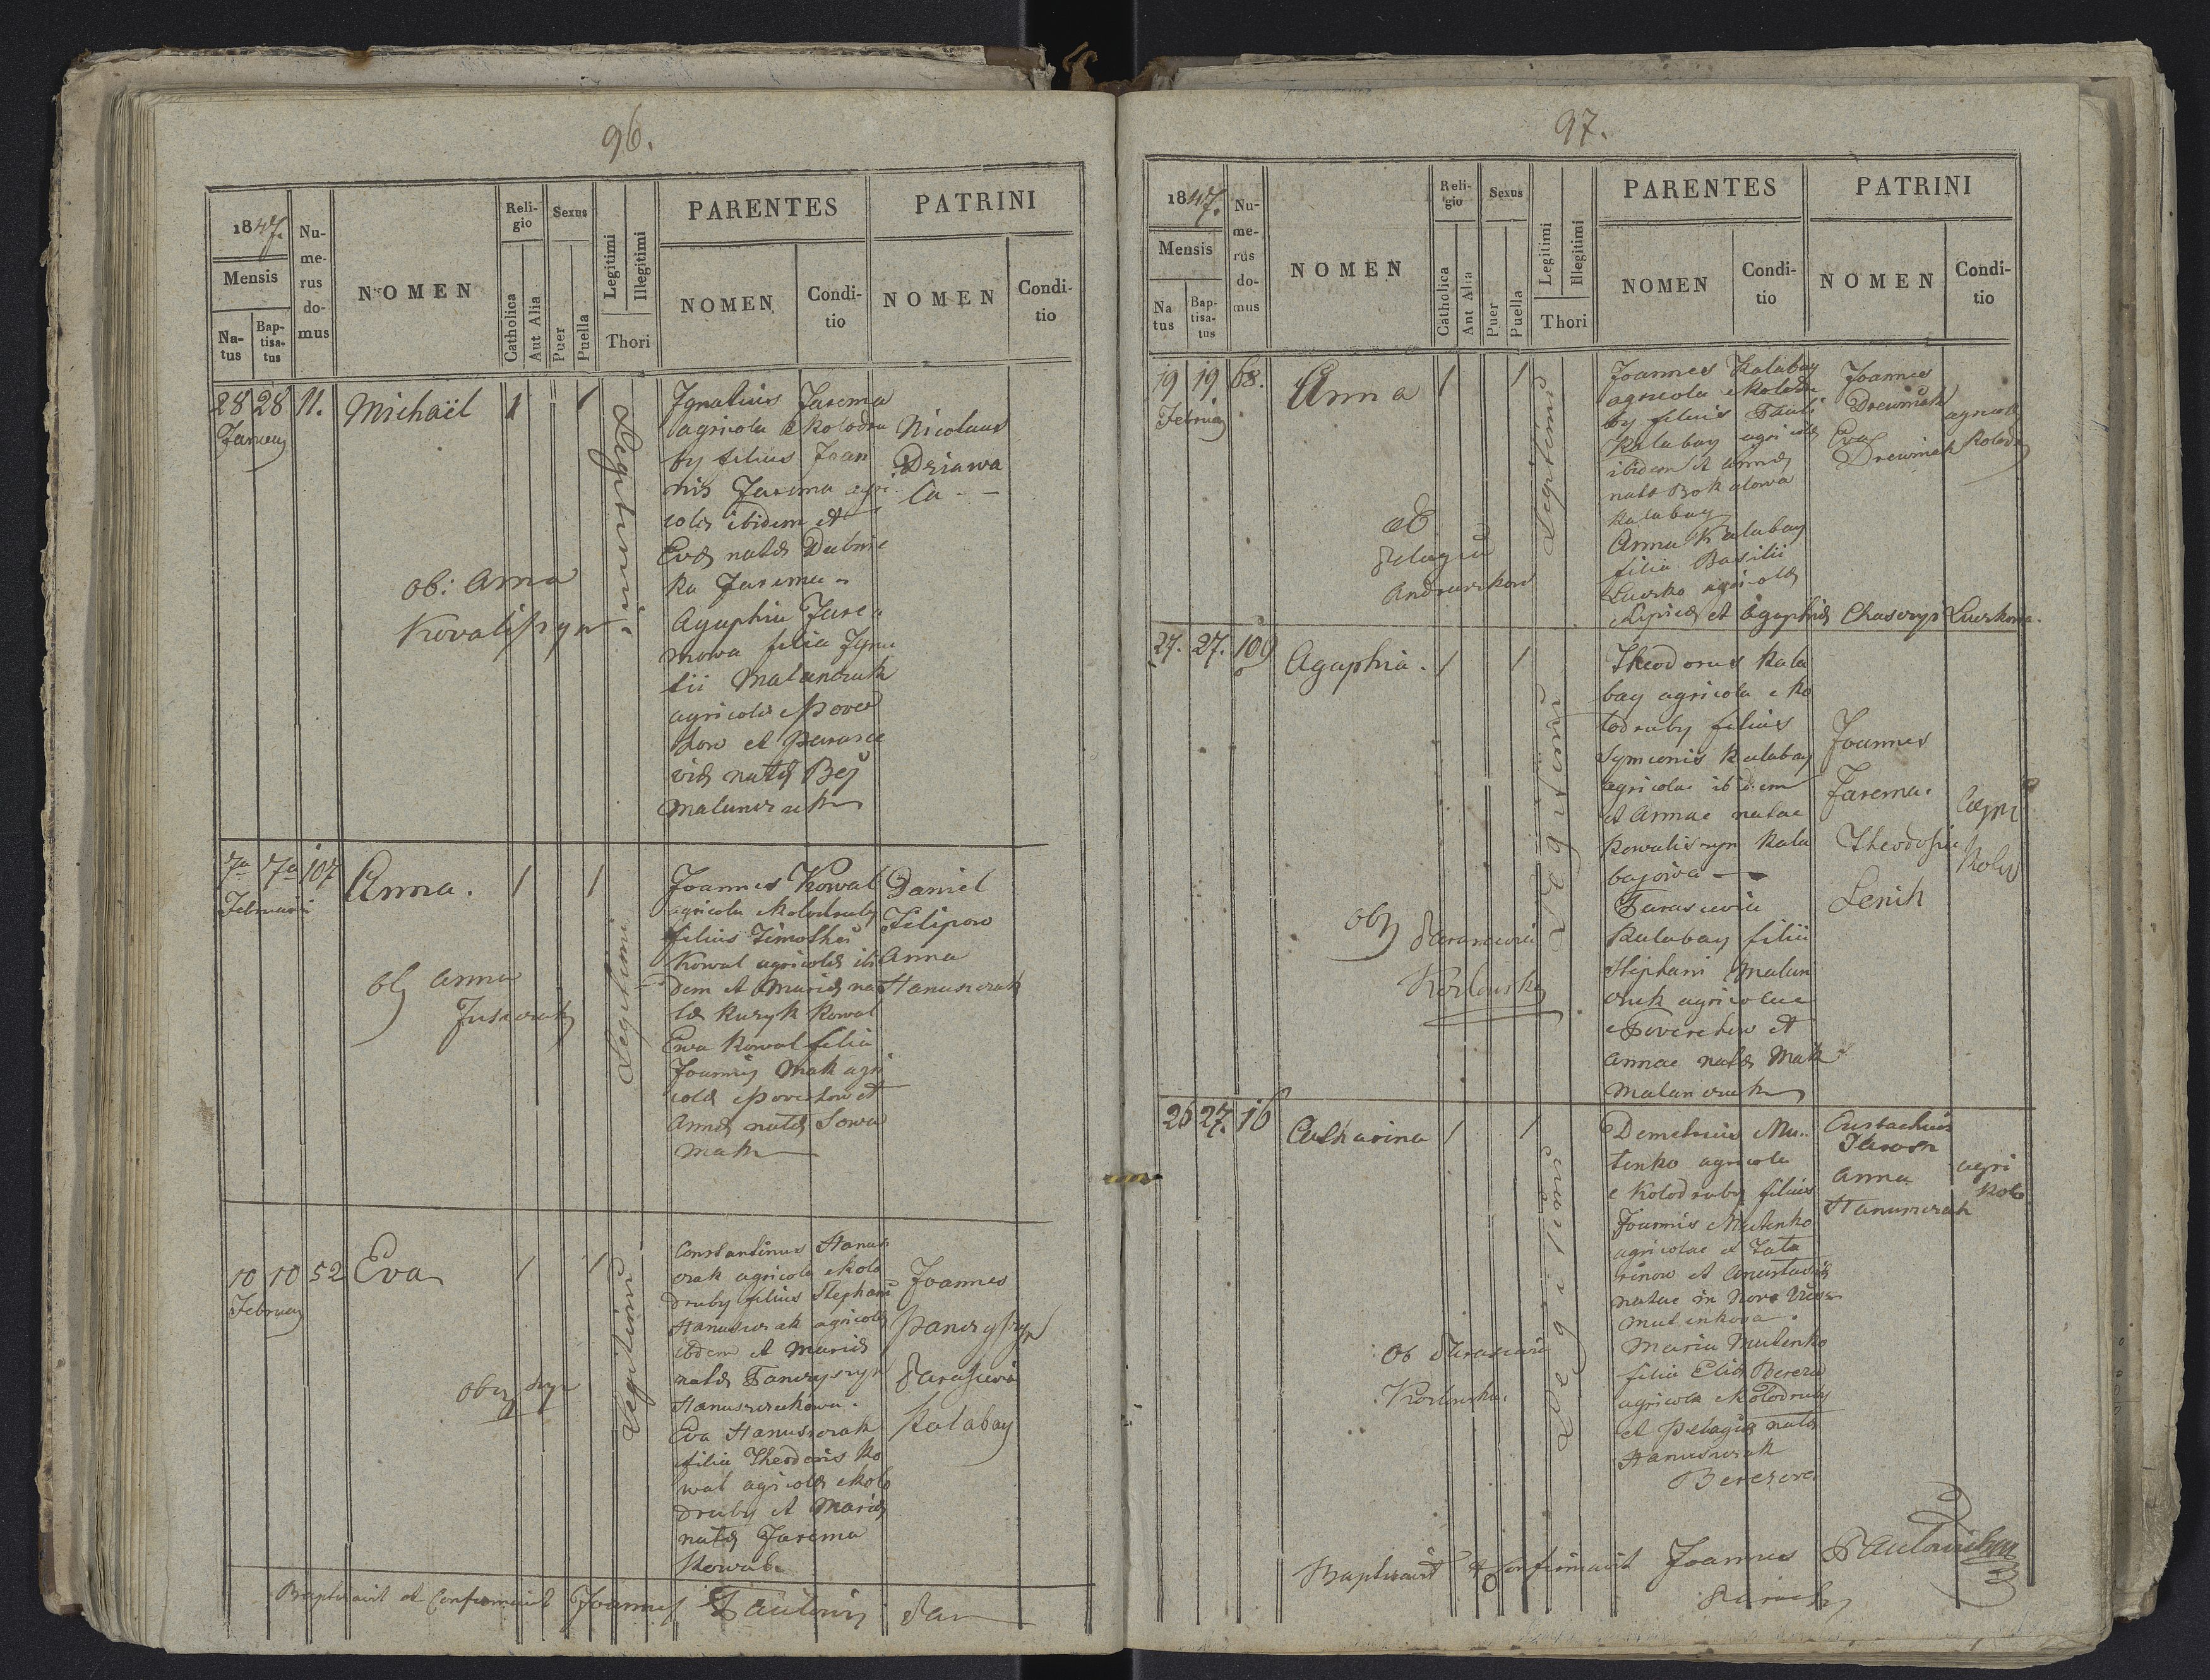 96.
1847.
Mensis
Na-
tus
Bap-
tisa-
tus
Nu-
me-
rus
do-
mus
NOMEN
Reli-
gio
Catholica
Aut Alia
Sexus
Puer
Puella
Legitimi
Illegitimi
Thori
PARENTES
NOMEN
Condi-
tio
PATRINI
NOMEN
Condi-
tio
28 28 11. Michaël 1 1
Legitimi
ob: Anna
Ignatius Jarema
agricola e Kolodru
by filius Joan
nis Jarema agri
colæ ibidem et
Evæ natæ Dubnic
ka Jarema
Agaphia Jare
mowa filia Igna
tii Malanczuk
agricolæ e Pover
chow et Parasce
viæ natæ Bej
Malanczuk
Nicolaus
Dziawa
la - -
7a 7a 107 Anna. 1 1
Februarii
Legitimi
obs Anna
Joannes Kowal
agricola e Kolodruby
filius Timothei
Kowal agricolæ ibi
dem et Mariæ na
tæ Kuzyk Kowal
Ewa Kowal filia
Joannis Mak agri
colæ e Poverchow et
Annæ natæ Sowa
Mak
Daniel
Filipow
Anna
Hanusczak
10 10 52 Eva 1 1
Legitimi
Constantinus Hanus
czak agricola e Kolo
druby filius Stephani
Hanusczak agricolæ
ibdem et Mariæ
natæ Panczyszyn
Hanusczakowa.
Eva Hanusczak
filia Theodoris Ko
wal agricolæ e Kolo
druby et Mariæ
natæ Jarema
Kowal
Joannes
Panczyszyn
Parascevia
Kalabay
Baptisavit et Confirmavit Joannes
97.
1847.
Mensis
Na
tus
Bap-
tisa-
tus
Nu-
me-
rus
do-
mus
NOMEN
Reli-
gio
Catholica
Aut Alia
Sexus
Puer
Puella
Legitimi
Illegitimi
Thori
PARENTES
NOMEN
Condi-
tio
PATRINI
NOMEN
Condi-
tio
19 19 68. Anna 1 1
Legitimi
ob
Pelagia
Joannes Kalabay
agricola e Kolodru
by filius Pauli
Kalabay agricolæ
ibidem et Annæ
natæ Bokalowa
Kalabay
Anna Kalabay
filia Basilii
Luczko agricolæ
et Agaphiæ
Joannes
Drewniak
Eva
Drewniak
agricolæ
Kolodr
27. 27. 109 Agaphia. 1 1
Legitimi
obs Parascevia
Kozlowska
Theodorus Kala
bay agricola e Ko
lodruby filius
Symeonis Kalabay
agricolae ibidem
et Annae natae
Kowaliszyn Kala
bajowa
Parascevia
Kalabay filii
Stephani Malan
czuk agricolae
e Poverchow et
Annae natæ Mak
Malanczuk
Joannes
Jarema.
Theodosia
Senik
agri
Kolo
26 27. 16 Catharina 1 1
Legitimi
ob Parascevia
Kozlowska.
Demetrius Mu
tenko agricola
e Kolodruby filius
Joannis Mutenko
agricolae e Tata
rinow et Anastasiæ
natae in Nova Wies
Mutenkowa.
Maria Mutenko
filia Eliæ Bereza
agricola e Kolodruby
et Pelagiæ natæ
Hanusczak
Berezowa
Eustachius
Anna
Hanusczak
agri
Kolo
Baptisavit & Confirmavit Joannes